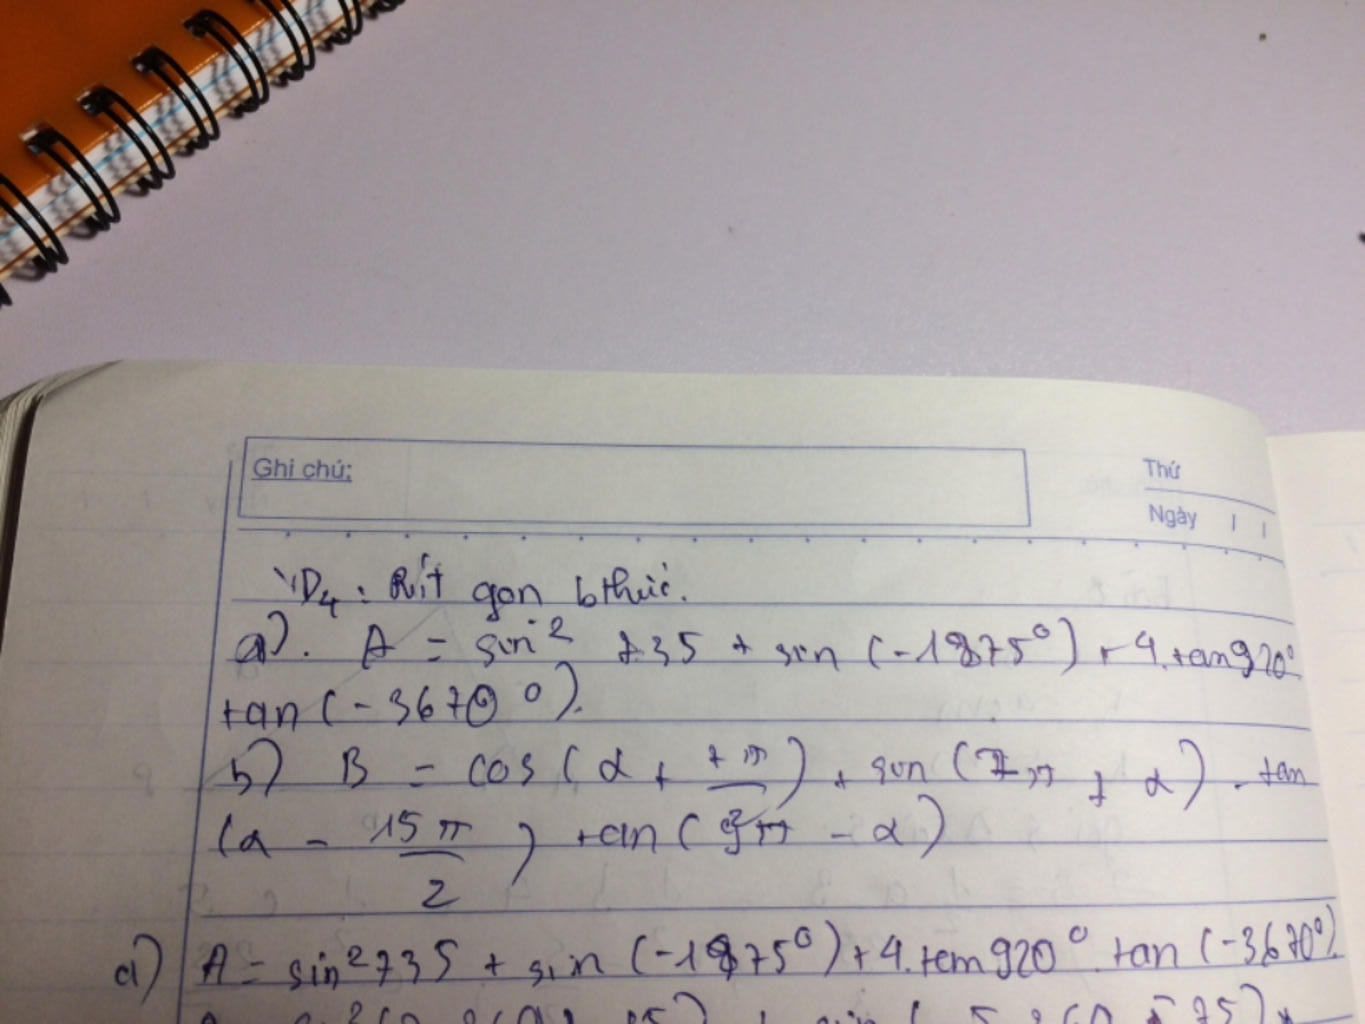 Ghi chú:
Thứ
Ngày
VD4: Rút gọn bthức.
a). A = sin² 735 + sin (-1875°) + 4.tan920°
tan(-3670°).
b) B = cos(α + 7π/2) + sin(7π + α) . tan
(α - 15π/2) tan(9π - α)
a) A = sin²735 + sin (-1875°) + 4.tan920°.tan(-3670°)